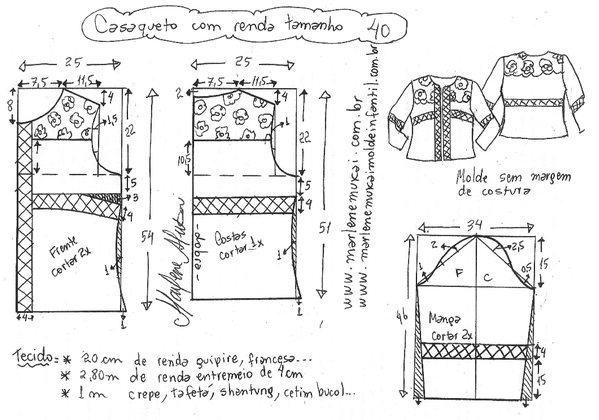 Casaqueto com renda tamanho 40
25
7,5 11,5
8
4
1,5
22
5
3
4
54
Frente
cortar 2x
1
4
1
25
7,5 11,5
2
4
1
22
10,5
5
4
51
Costas
cortar 1x
-dobra-
1
1
Marlene Mukai
www.marlenemukai.com.br
www.marlenemukaimoldeinfantil.com.br
Molde sem margem
de costura
34
2
2,5
15
1
F
C
0,5
46
Manga
cortar 2x
4
15
1
1
Tecido= * 20cm de renda guipire, francesa...
* 2,80m de renda entremeio de 4cm
* 1m crepe, tafetá, shantung, cetim bucol...